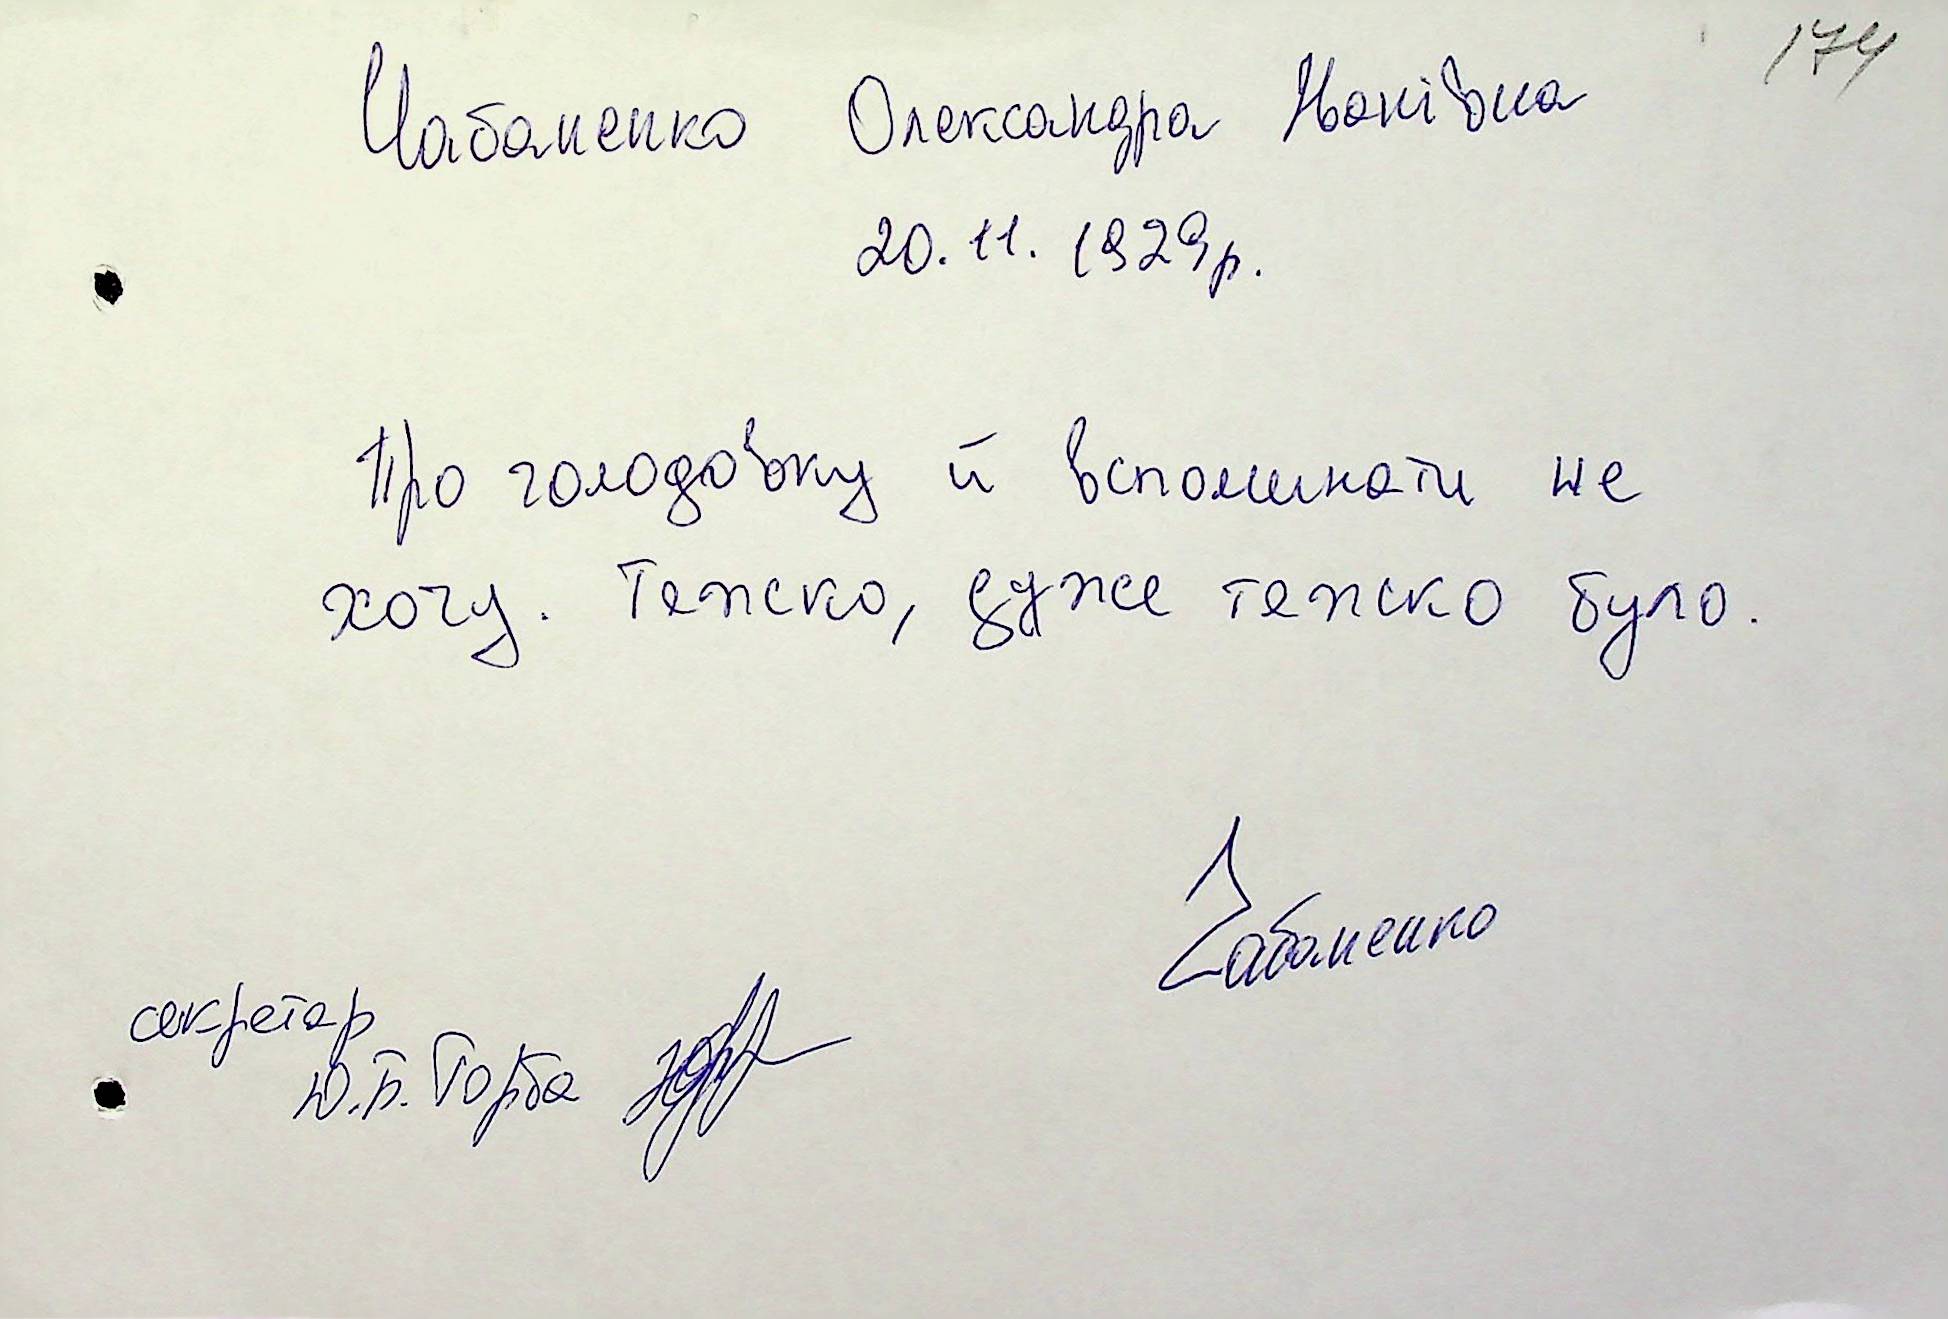 174
Чабаненко Олександра Іванівна
20.11.1929р.
Про голодовку й вспоминати не
хочу. Тежско, дуже тежско було.
Чабаненко
секретар
Ю.В. Горба